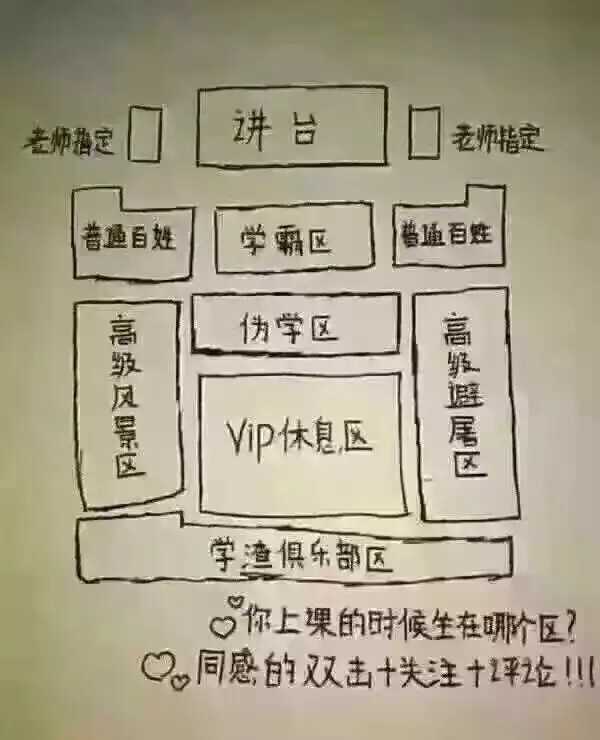 讲台
老师指定
老师指定
普通百姓
学霸区
普通百姓
伪学区
高级风景区
高级避屠区
Vip休息区
学渣俱乐部区
你上课的时候坐在哪个区?
同感的双击+关注+评论!!!